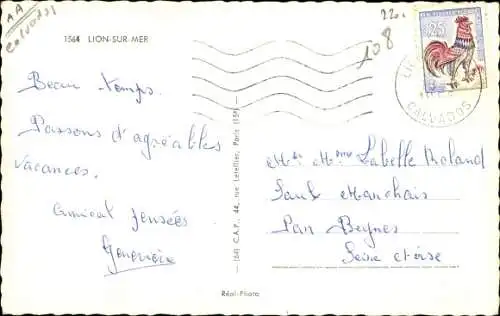 AA
Calvados
1564 LION-SUR-MER
220
108
25
CALVADOS
Beau temps.
Passons d'agréables
vacances.
Amical pensées
Geneviève
(54) C.A.P., 44, rue Letellier, Paris (15e)
Mr Mme Labelle Roland
Saul Marchais
Par Beynes
Seine et Oise
Réal-Photo